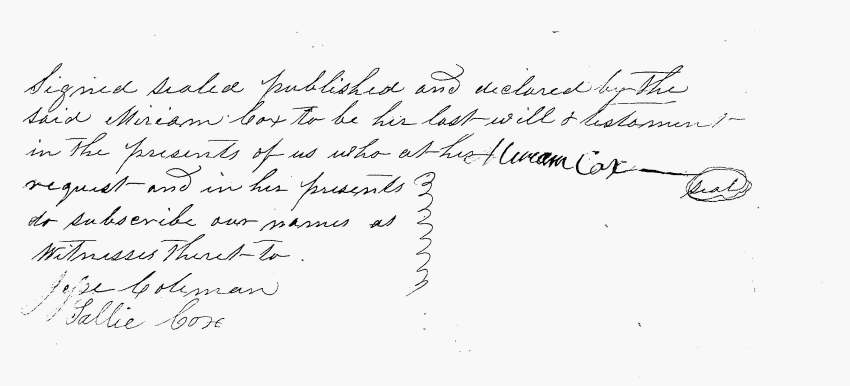 Signed sealed published and declared by the
said Miriam Cox to be her last will & testament
in the presents of us who at her Miriam Cox
request and in her presents seal
do subscribe our names as
Witnesses theret to.
Jesse Coleman
Sallie Cox